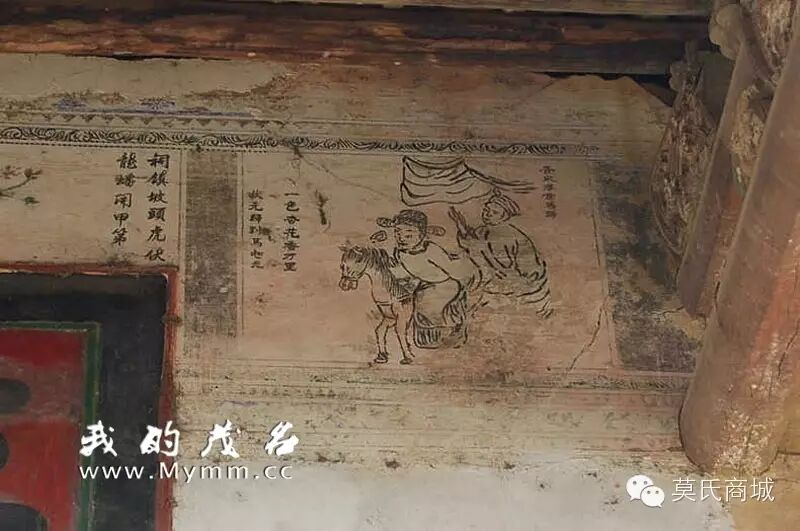 一色杏花香万里
狀元歸到馬
祠鎮坡頭虎伏
龍蟠開甲第
我的茂名
www.Mymm.cc
莫氏商城